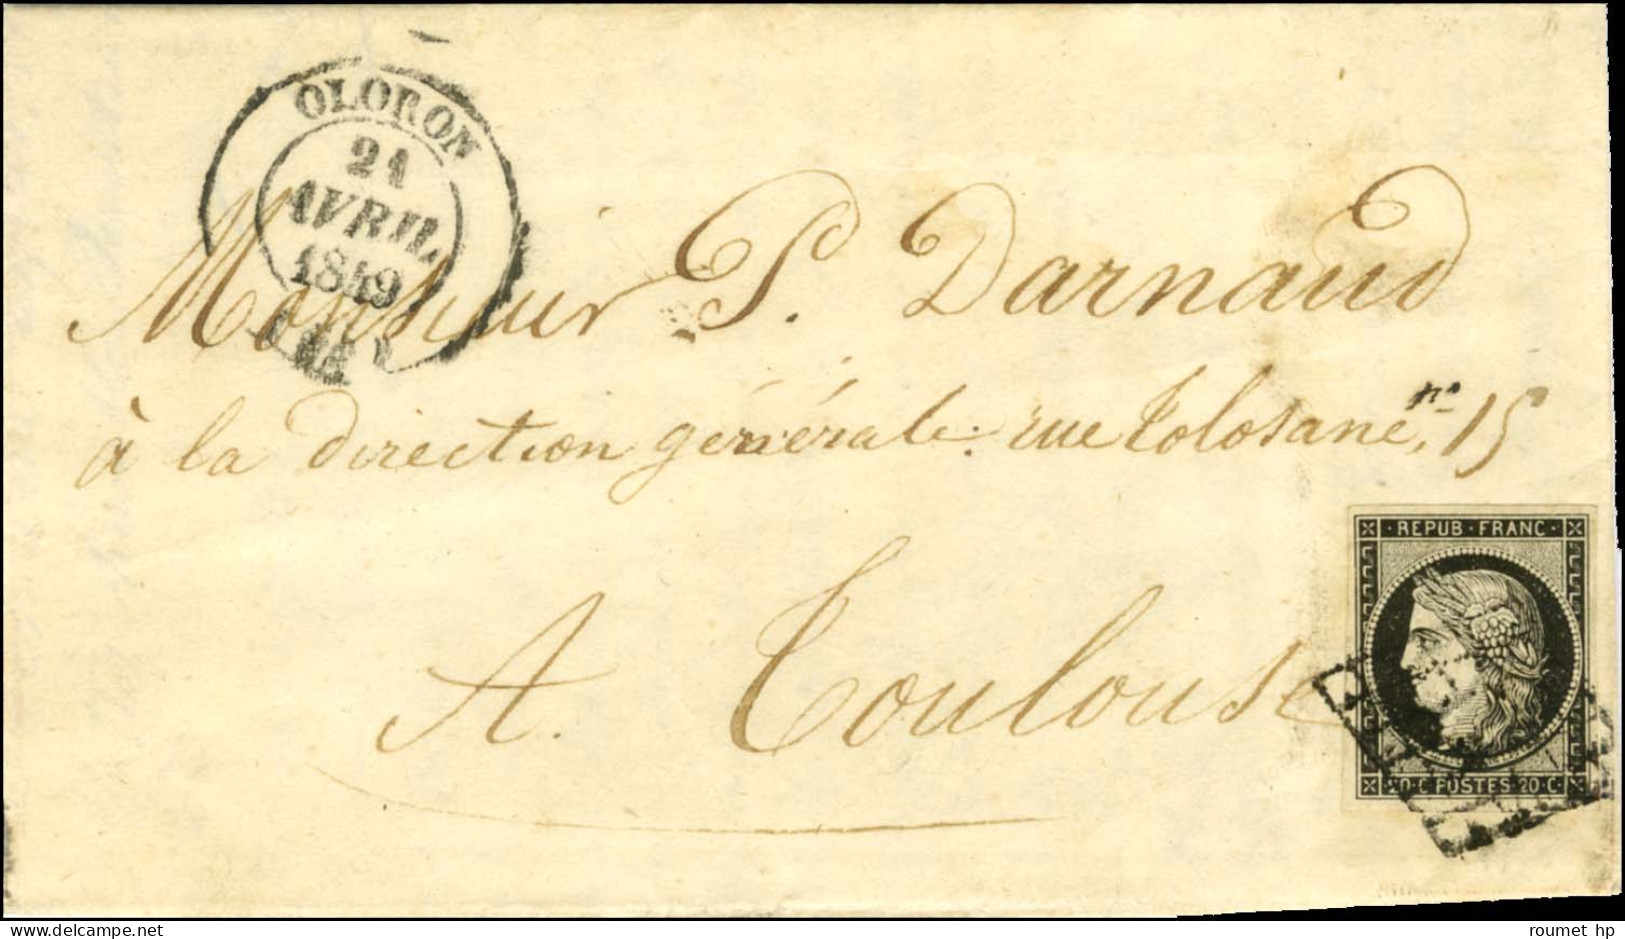 OLORON
21
AVRIL
1849
Monsieur P. Darnaud
à la direction générale. rue Tolosane, n° 15
REPUB · FRANC ·
A. Toulouse
20 · C POSTES 20 · C ·
roumet hp